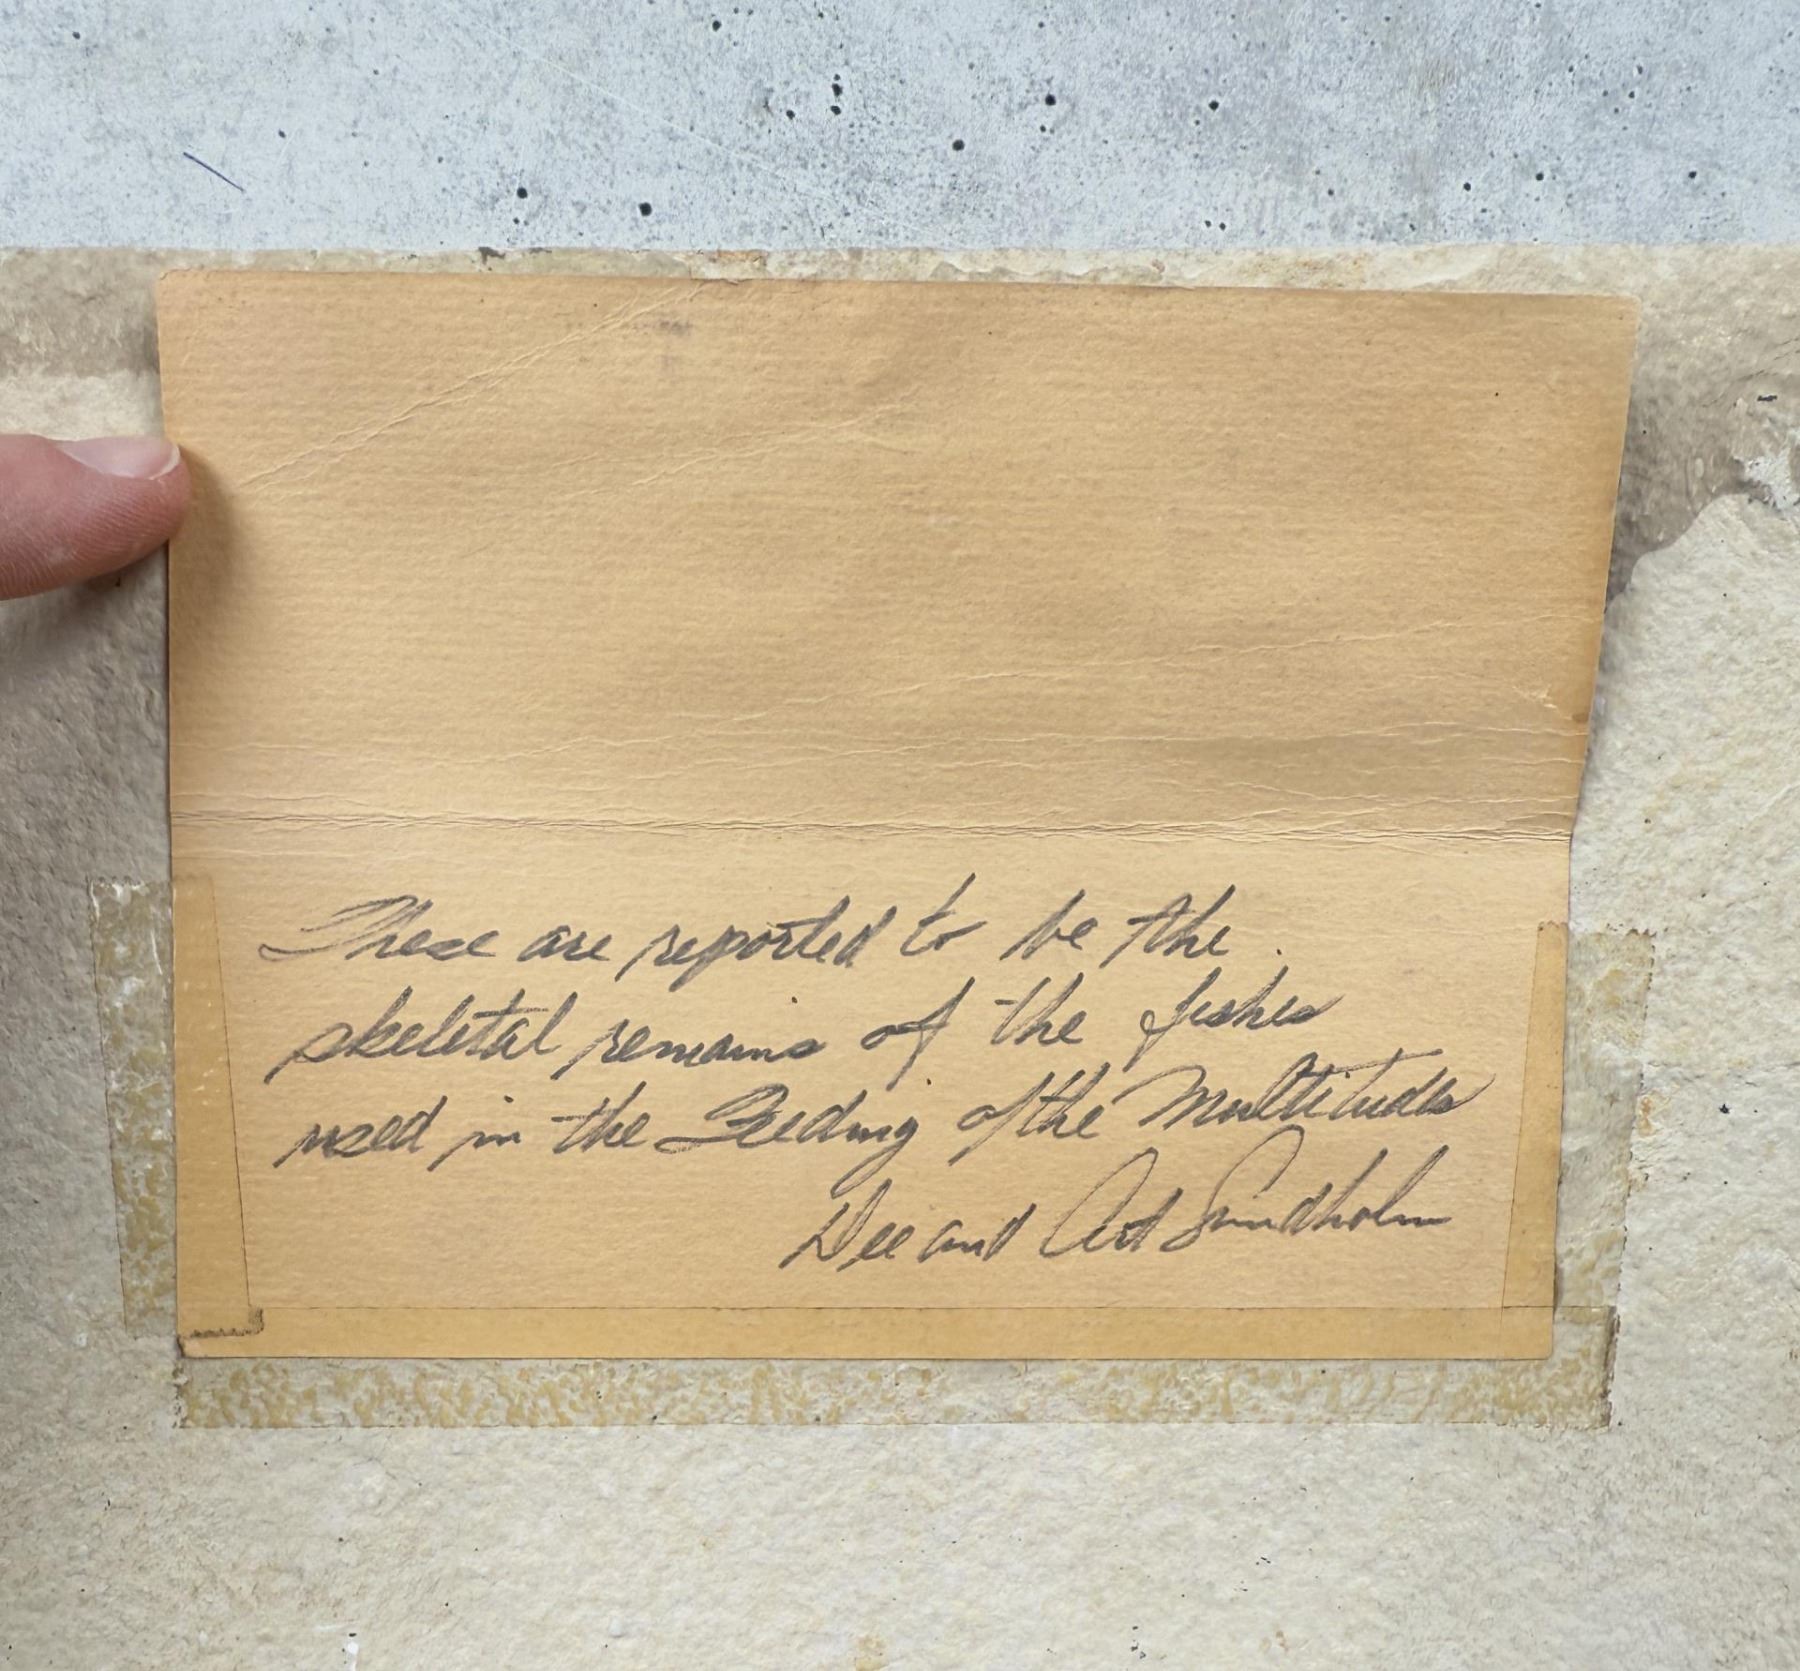 These are reported to be the
skeletal remains of the fishes
used in the Feeding of the Multitudes
Dee and Art Sundholm